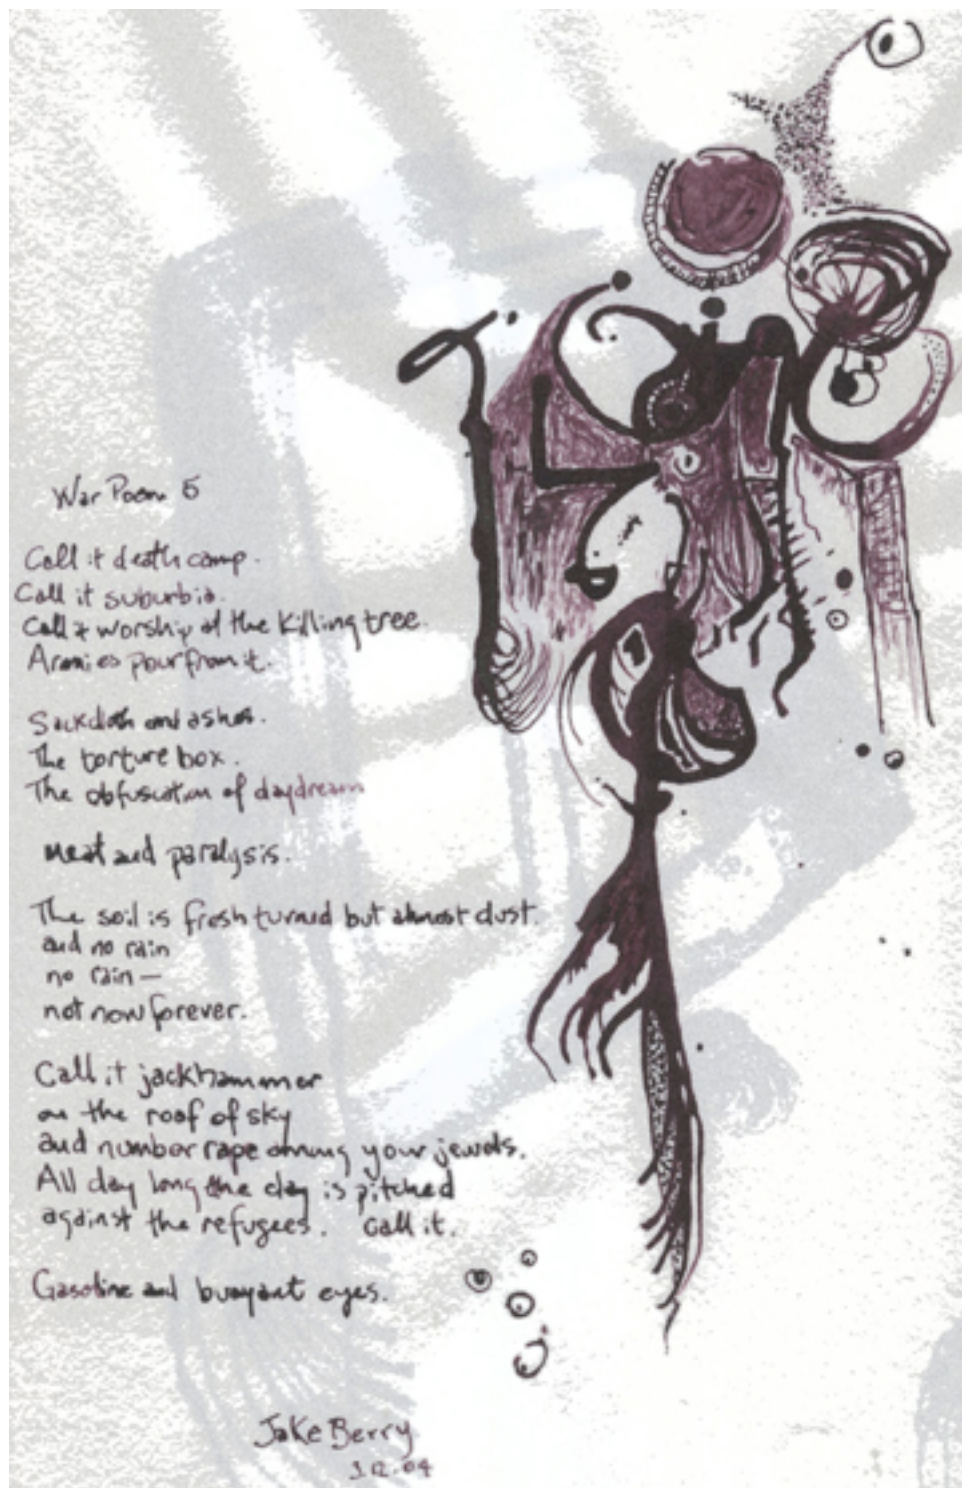 War Poem 5
Call it death camp.
Call it suburbia.
Call it worship of the killing tree.
Armies pour from it.
Sackcloth and ashes.
The torture box.
The obfuscation of daydream
meat and paralysis.
The soil is fresh turned but almost dust.
and no rain
no rain —
not now forever.
Call it jackhammer
on the roof of sky
and number rape among your jewels.
All day long the day is pitched
against the refugees. Call it.
Gasoline and buoyant eyes.
Jake Berry
3.12.04